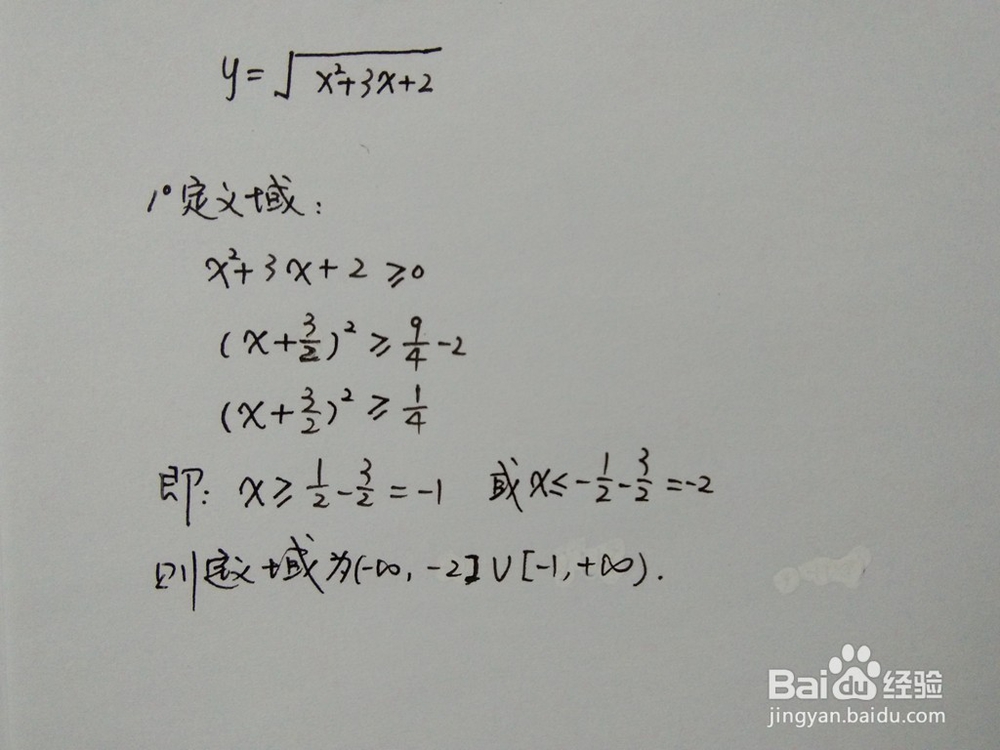 y=√x²+3x+2
1°定义域:
x²+3x+2≥0
(x+3/2)²≥9/4-2
(x+3/2)²≥1/4
即: x≥1/2-3/2=-1 或x≤-1/2-3/2=-2
则定义域为(-∞,-2]∪[-1,+∞).
Baidu经验
jingyan.baidu.com